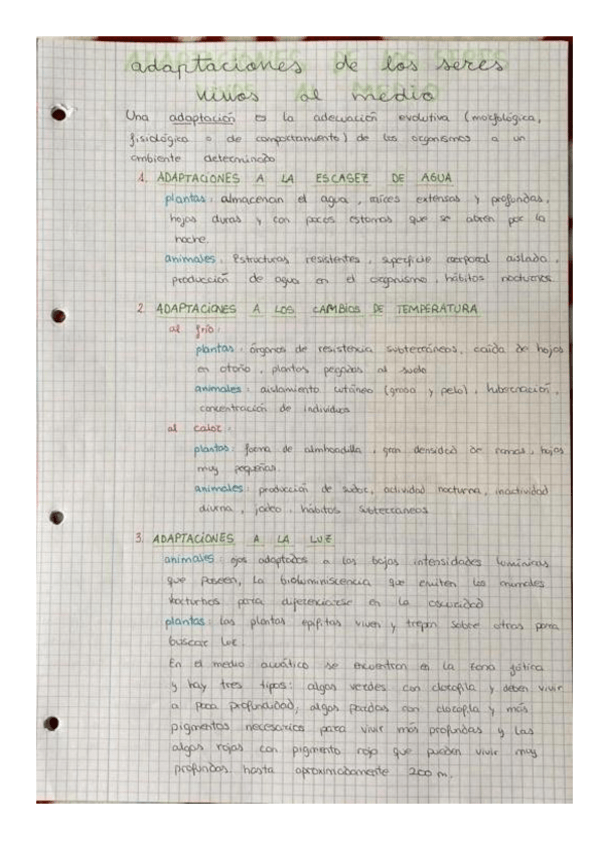 adaptaciones de los seres
vivos al medio
Una adaptación es la adecuación evolutiva (morfológica,
fisiológica o de comportamiento) de los organismos a un
ambiente determinado
1. ADAPTACIONES A LA ESCASEZ DE AGUA
plantas: almacenan el agua, raíces extensas y profundas,
hojas duras y con pocos estomas que se abren por la
noche.
animales: Estructuras resistentes, superficie corporal aislada,
producción de agua en el organismo, hábitos nocturnos.
2. ADAPTACIONES A LOS CAMBIOS DE TEMPERATURA
al frío:
plantas: órganos de resistencia subterráneos, caída de hojas
en otoño, plantas pegadas al suelo
animales: aislamiento cutáneo (grasa y pelo), hibernación,
concentración de individuos
al calor:
plantas: forma de almhoadilla, gran densidad de ramas, hojas
muy pequeñas.
animales: producción de sudor, actividad nocturna, inactividad
diurna, jadeo, hábitos subterraneos
3. ADAPTACIONES A LA LUZ
animales: ojos adaptados a las bajas intensidades lumínicas
que poseen, la bioluminiscencia que emiten los animales
nocturnos para diferenciarse en la oscuridad
plantas: las plantas epífitas viven y trepan sobre otras para
buscar luz.
En el medio acuático se encuentran en la zona fótica
y hay tres tipos: algas verdes con clorofila y deben vivir
a poca profundidad, algas pardas con clorofila y más
pigmentos necesarios para vivir más profundas y las
algas rojas con pigmento rojo que pueden vivir muy
profundas hasta aproximadamente 200 m.